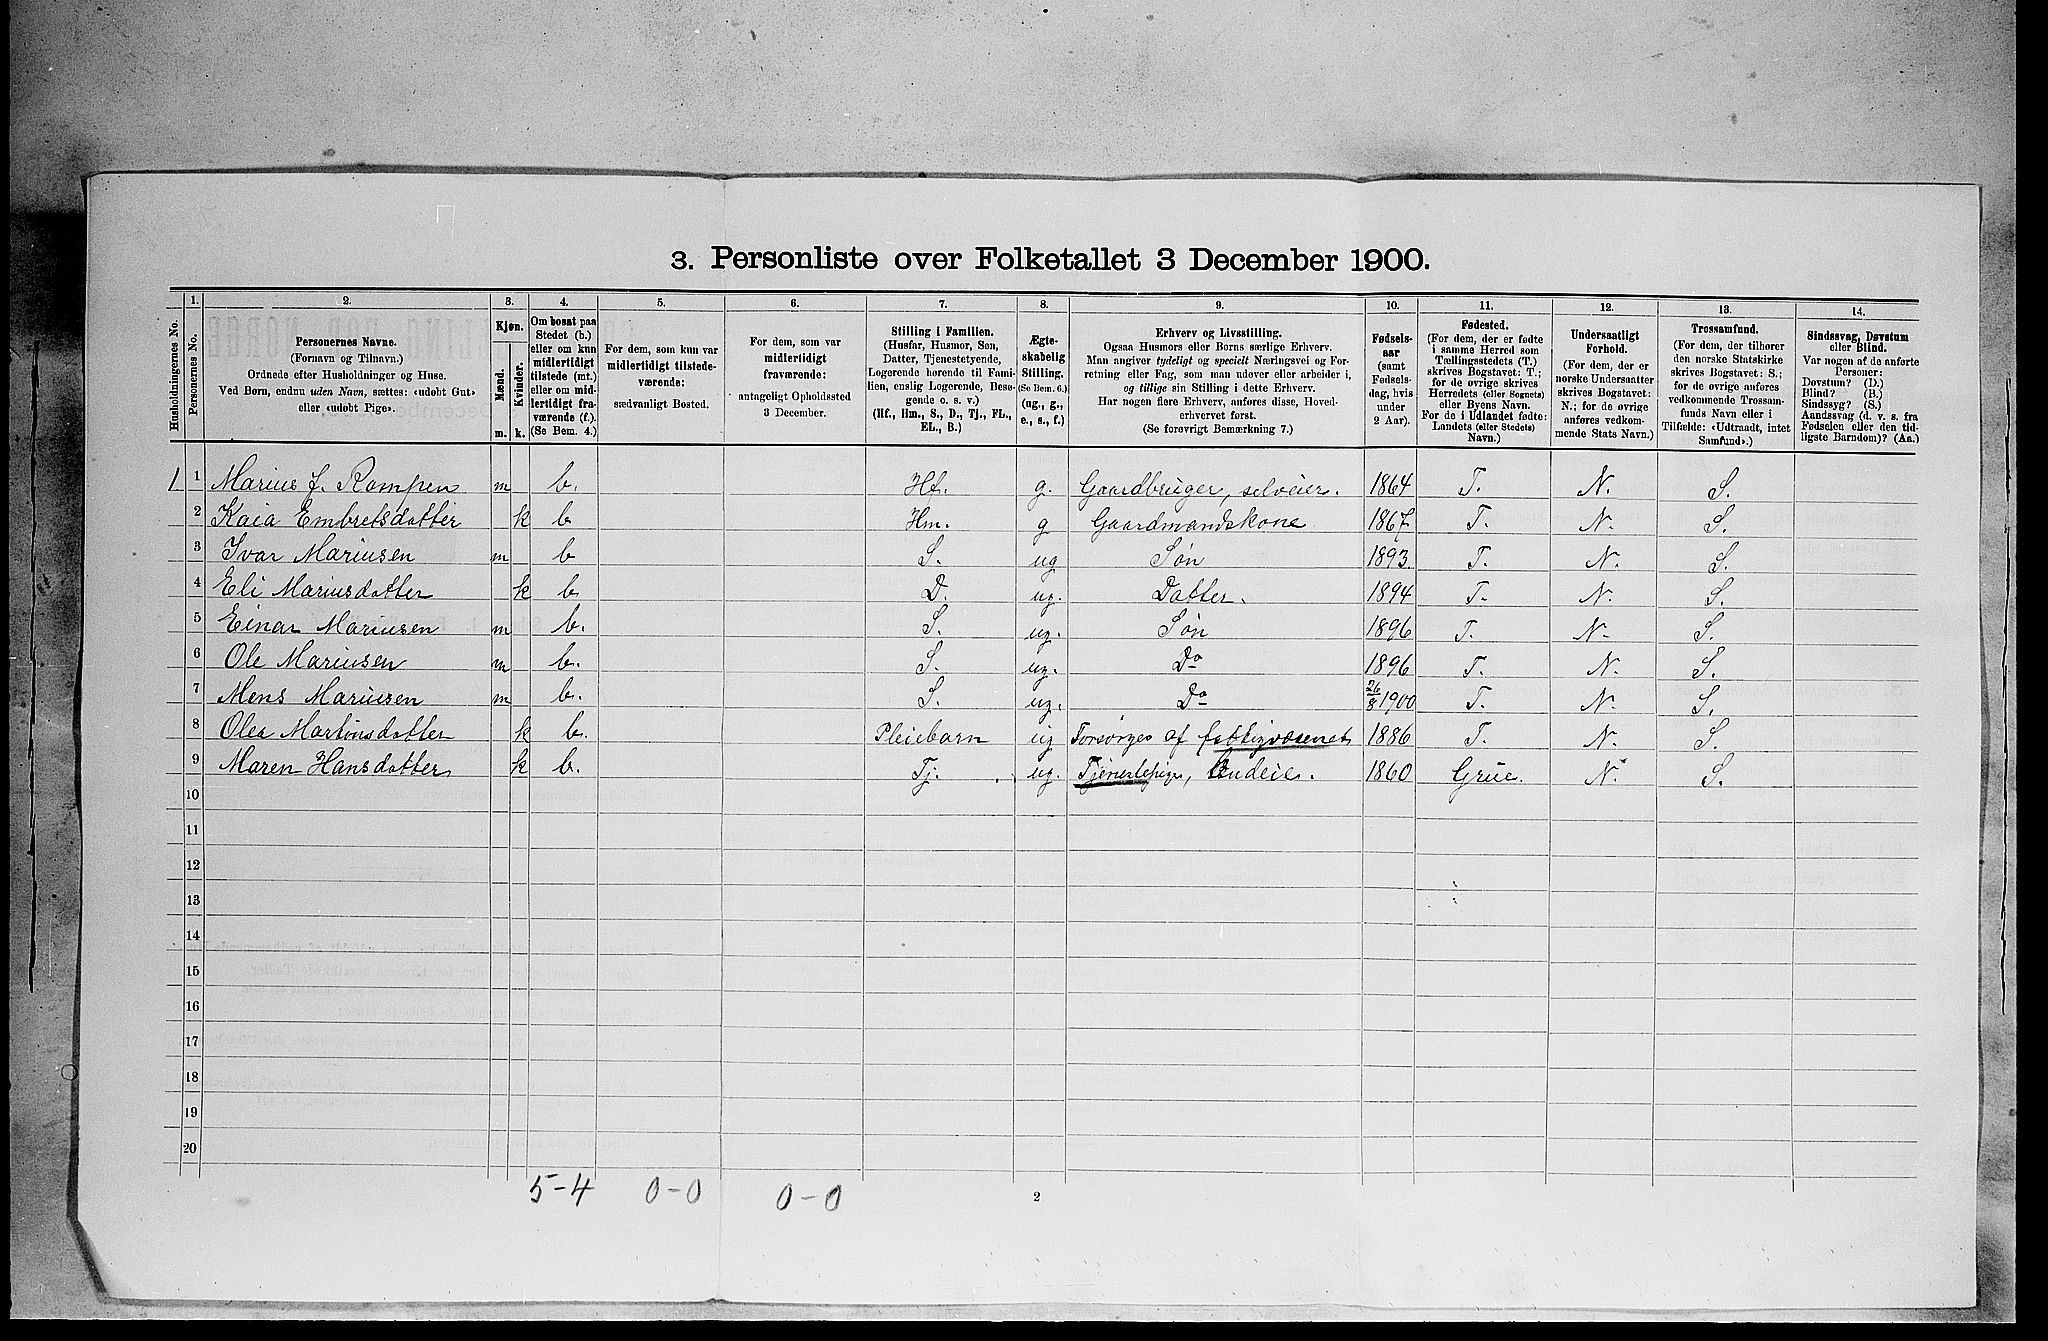 3. Personliste over Folketallet 3 December 1900.
Husholdningernes No.
1. Personernes No.
2. Personernes Navne.
(Fornavn og Tilnavn.)
Ordnede efter Husholdninger og Huse.
Ved Børn, endnu uden Navn, sættes: «udobt Gut»
eller «udobt Pige».
3. Kjøn.
Mænd. m.
Kvinder. k.
4. Om bosat paa
Stedet (b.)
eller om kun
midlertidigt
tilstede (mt.)
eller om mid-
lertidigt fra-
værende (f.)
(Se Bem. 4.)
5. For dem, som kun var
midlertidigt tilstede-
værende:
sædvanligt Bosted.
6. For dem, som var
midlertidigt
fraværende:
antageligt Opholdssted
3 December.
7. Stilling i Familien.
(Husfar, Husmor, Søn,
Datter, Tjenestetyende,
Logerende hørende til Fami-
lien, enslig Logerende, Besø-
gende o. s. v.)
(Hf., Hm., S., D., Tj., FL.,
EL., B.)
8. Ægte-
skabelig
Stilling.
(Se Bem. 6.)
(ug., g.,
e., s., f.)
9. Erhverv og Livsstilling.
Ogsaa Husmors eller Børns særlige Erhverv.
Man angiver tydeligt og specielt Næringsvei og For-
retning eller Fag, som man udøver eller arbeider i,
og tillige sin Stilling i dette Erhverv.
Har nogen flere Erhverv, anføres disse, Hoved-
erhvervet først.
(Se forøvrigt Bemærkning 7.)
10. Fødsels-
aar
(samt
Fødsels-
dag, hvis
under
2 Aar).
11. Fødested.
(For dem, der er fødte
i samme Herred som
Tællingsstedets (T.)
skrives Bogstavet: T.;
for de øvrige skrives
Herredets (eller Sognets)
eller Byens Navn.
For de i Udlandet fødte:
Landets (eller Stedets)
Navn.)
12. Undersaatligt
Forhold.
(For dem, der er
norske Undersaatter
skrives Bogstavet:
N.; for de øvrige
anføres vedkom-
mende Stats Navn.)
13. Trossamfund.
(For dem, der tilhører
den norske Statskirke
skrives Bogstavet: S.;
for de øvrige anføres
vedkommende Trossam-
funds Navn eller i
Tilfælde: «Udtraadt, intet
Samfund».)
14. Sindssvag, Døvstum
eller Blind.
Var nogen af de anførte
Personer:
Døvstum? (D.)
Blind? (B.)
Sindssyg? (S.)
Aandssvag (d. v. s. fra
Fødselen eller den tid-
ligste Barndom)? (Aa.)
1 1 Marius J. Rompen m b. Hf. g. Gaardbruger, selveier. 1864 T. N. S.
2 Kaia Embretsdatter k b Hm. g Gaardmandskone 1867 T. N. S.
3 Ivar Mariusen m b S. ug Søn 1893. T. N. S.
4 Eli Mariusdatter k b D. ug. Datter. 1894 T. N. S.
5 Einar Mariusen m b. S. ug. Søn 1896 T. N. S.
6 Ole Mariusen m b. S. ug. Do 1896 T. N. S.
7 Mens Mariusen m b. S. ug. Do 26/8 1900 T. N. S.
8 Olea Martinsdatter k b. Pleiebarn ug Forsørges af fattigvæsenet 1886 T. N. S.
9 Maren Hansdatter k b. Tj. ug. Tjenestepige, Budeie. 1860 Grue. N. S.
10
11
12
13
14
15
16
17
18
19
20
5-4 0-0 0-0 2